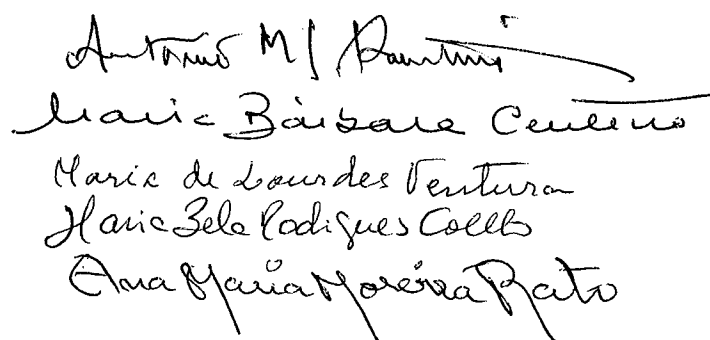 António M
Maria Bárbara Centeno
Maria de Lourdes Ventura
Maria Bela Rodigues Coelho
Ana Maria Moreira Rato